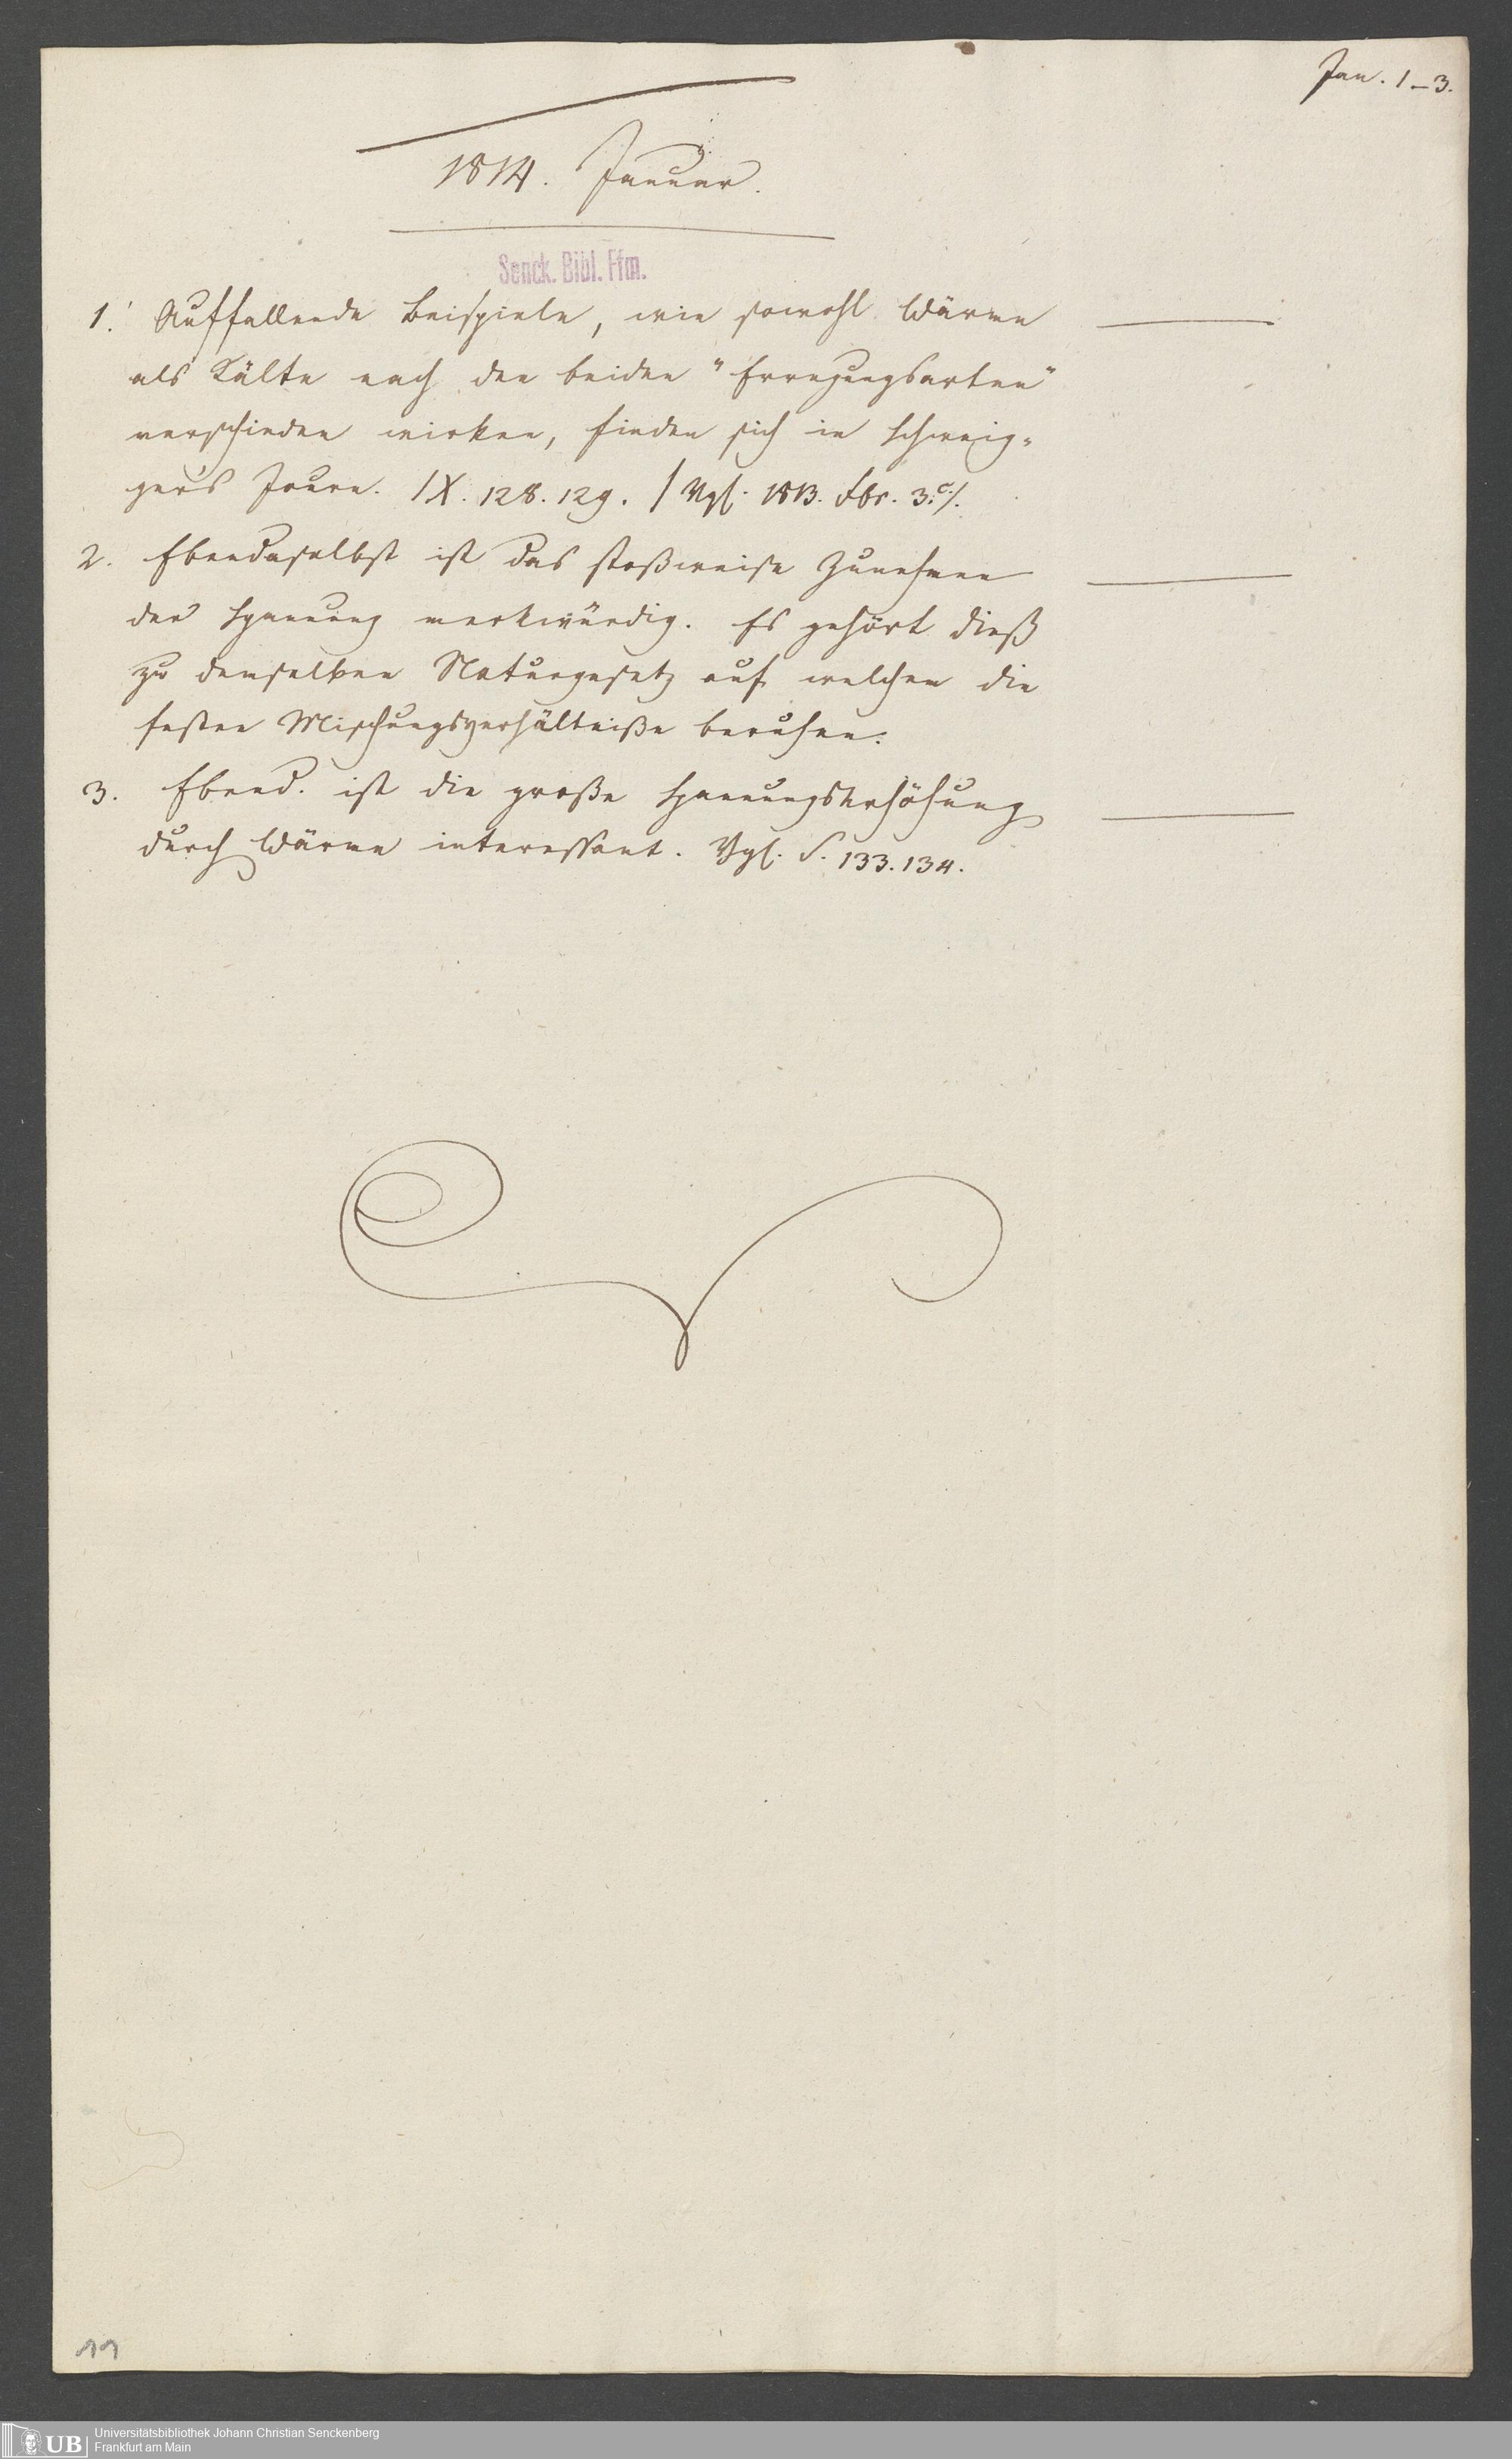 Jan. 1–3.
1814. Januar.
Senck. Bibl. Ffm.
1. Auffallende Beispiele, wie sowohl Wärme
als Kälte nach den beiden "Erregungsarten"
verschieden wirken, finden sich in Schweig-
ger's Journ. IX. 128. 129. / Vgl. 1813. Fbr. 3.c/.
2. Ebendaselbst ist das stoßweise Zunehmen
der Spannung merkwürdig. Es gehört dieß
zu demselben Naturgesetz auf welchem die
festen Mischungsverhältniße beruhen.
3. Ebend. ist die große Spannungserhöhung
durch Wärme interessant. Vgl. S. 133. 134.
11
UB
Universitätsbibliothek Johann Christian Senckenberg
Frankfurt am Main